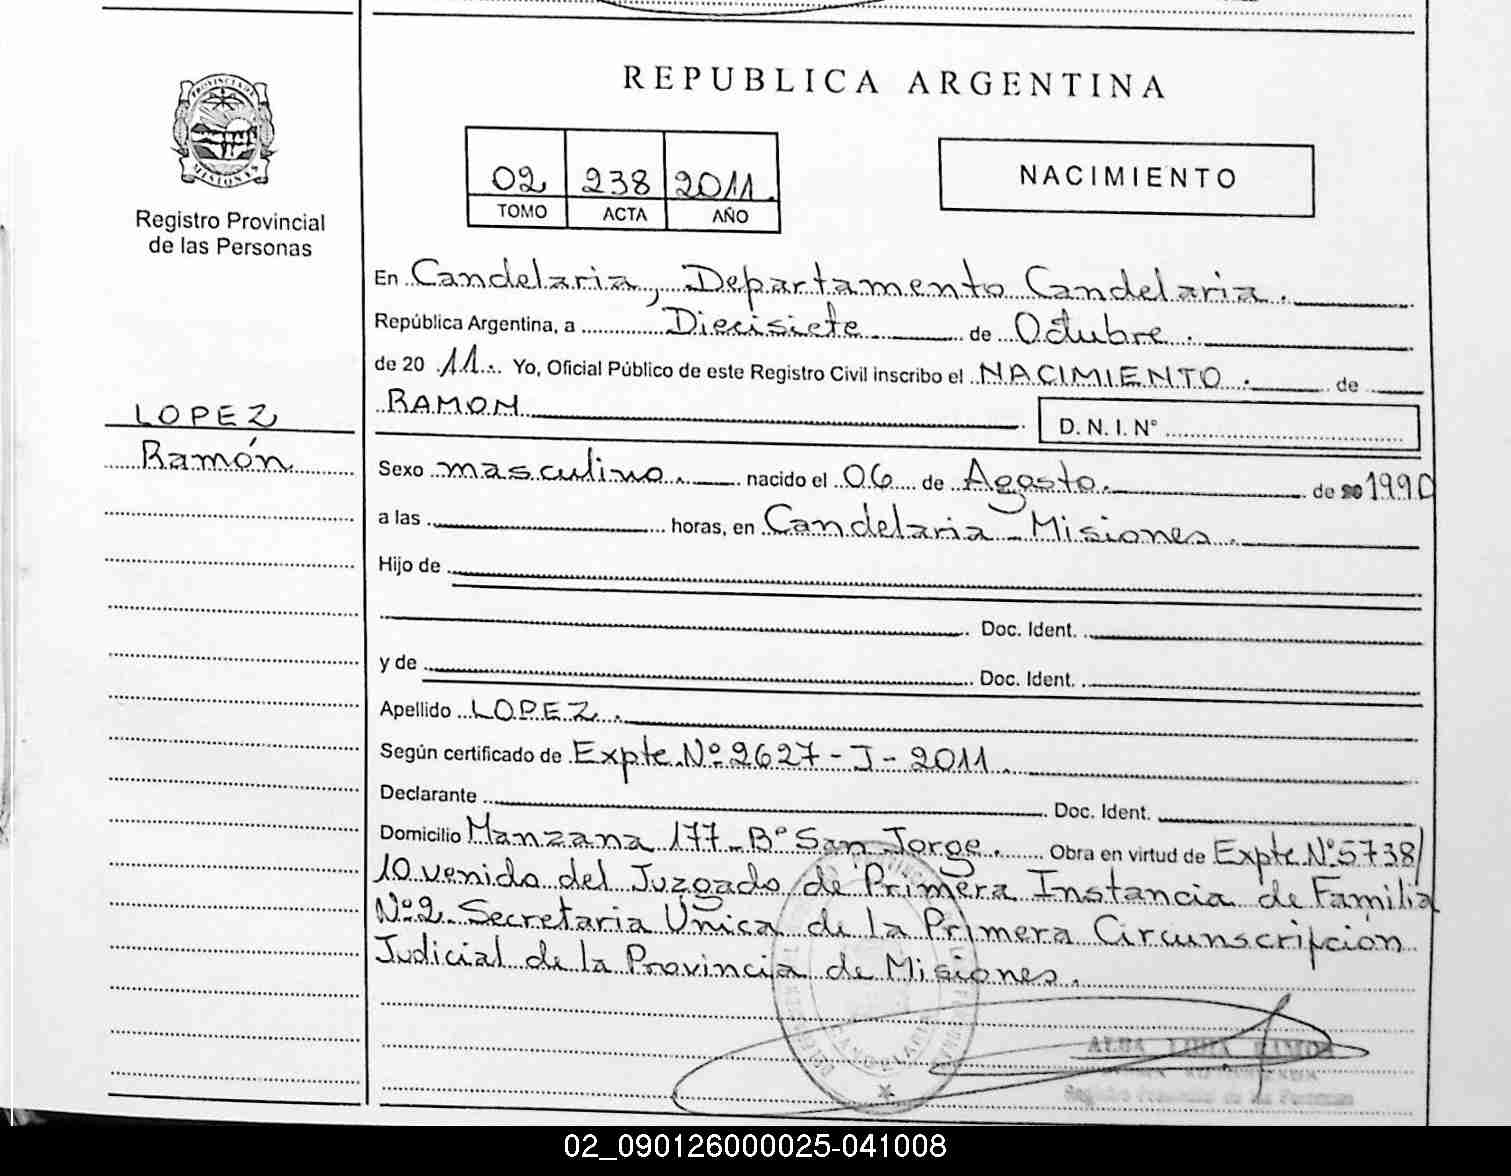 REPUBLICA ARGENTINA
PROVINCIA DE
MISIONES
Registro Provincial
de las Personas
02 238 2011.
TOMO ACTA AÑO
NACIMIENTO
En Candelaria, Departamento Candelaria.
República Argentina, a Diecisiete de Octubre.
de 20 11. Yo, Oficial Público de este Registro Civil inscribo el NACIMIENTO. de
RAMON D. N. I. N°
LOPEZ
Ramón
Sexo masculino. nacido el 06 de Agosto. de 1990
a las horas, en Candelaria - Misiones.
Hijo de
Doc. Ident.
y de Doc. Ident.
Apellido LOPEZ.
Según certificado de Expte. Nº 2627 - J - 2011.
Declarante Doc. Ident.
Domicilio Manzana 177 - Bº San Jorge. Obra en virtud de Expte Nº 5738/
10 venido del Juzgado de Primera Instancia de Familia
Nº 2 Secretaria Unica de la Primera Circunscripción
Judicial de la Provincia de Misiones.
CANDELARIA
Registro Provincial de las Personas
02_090126000025-041008